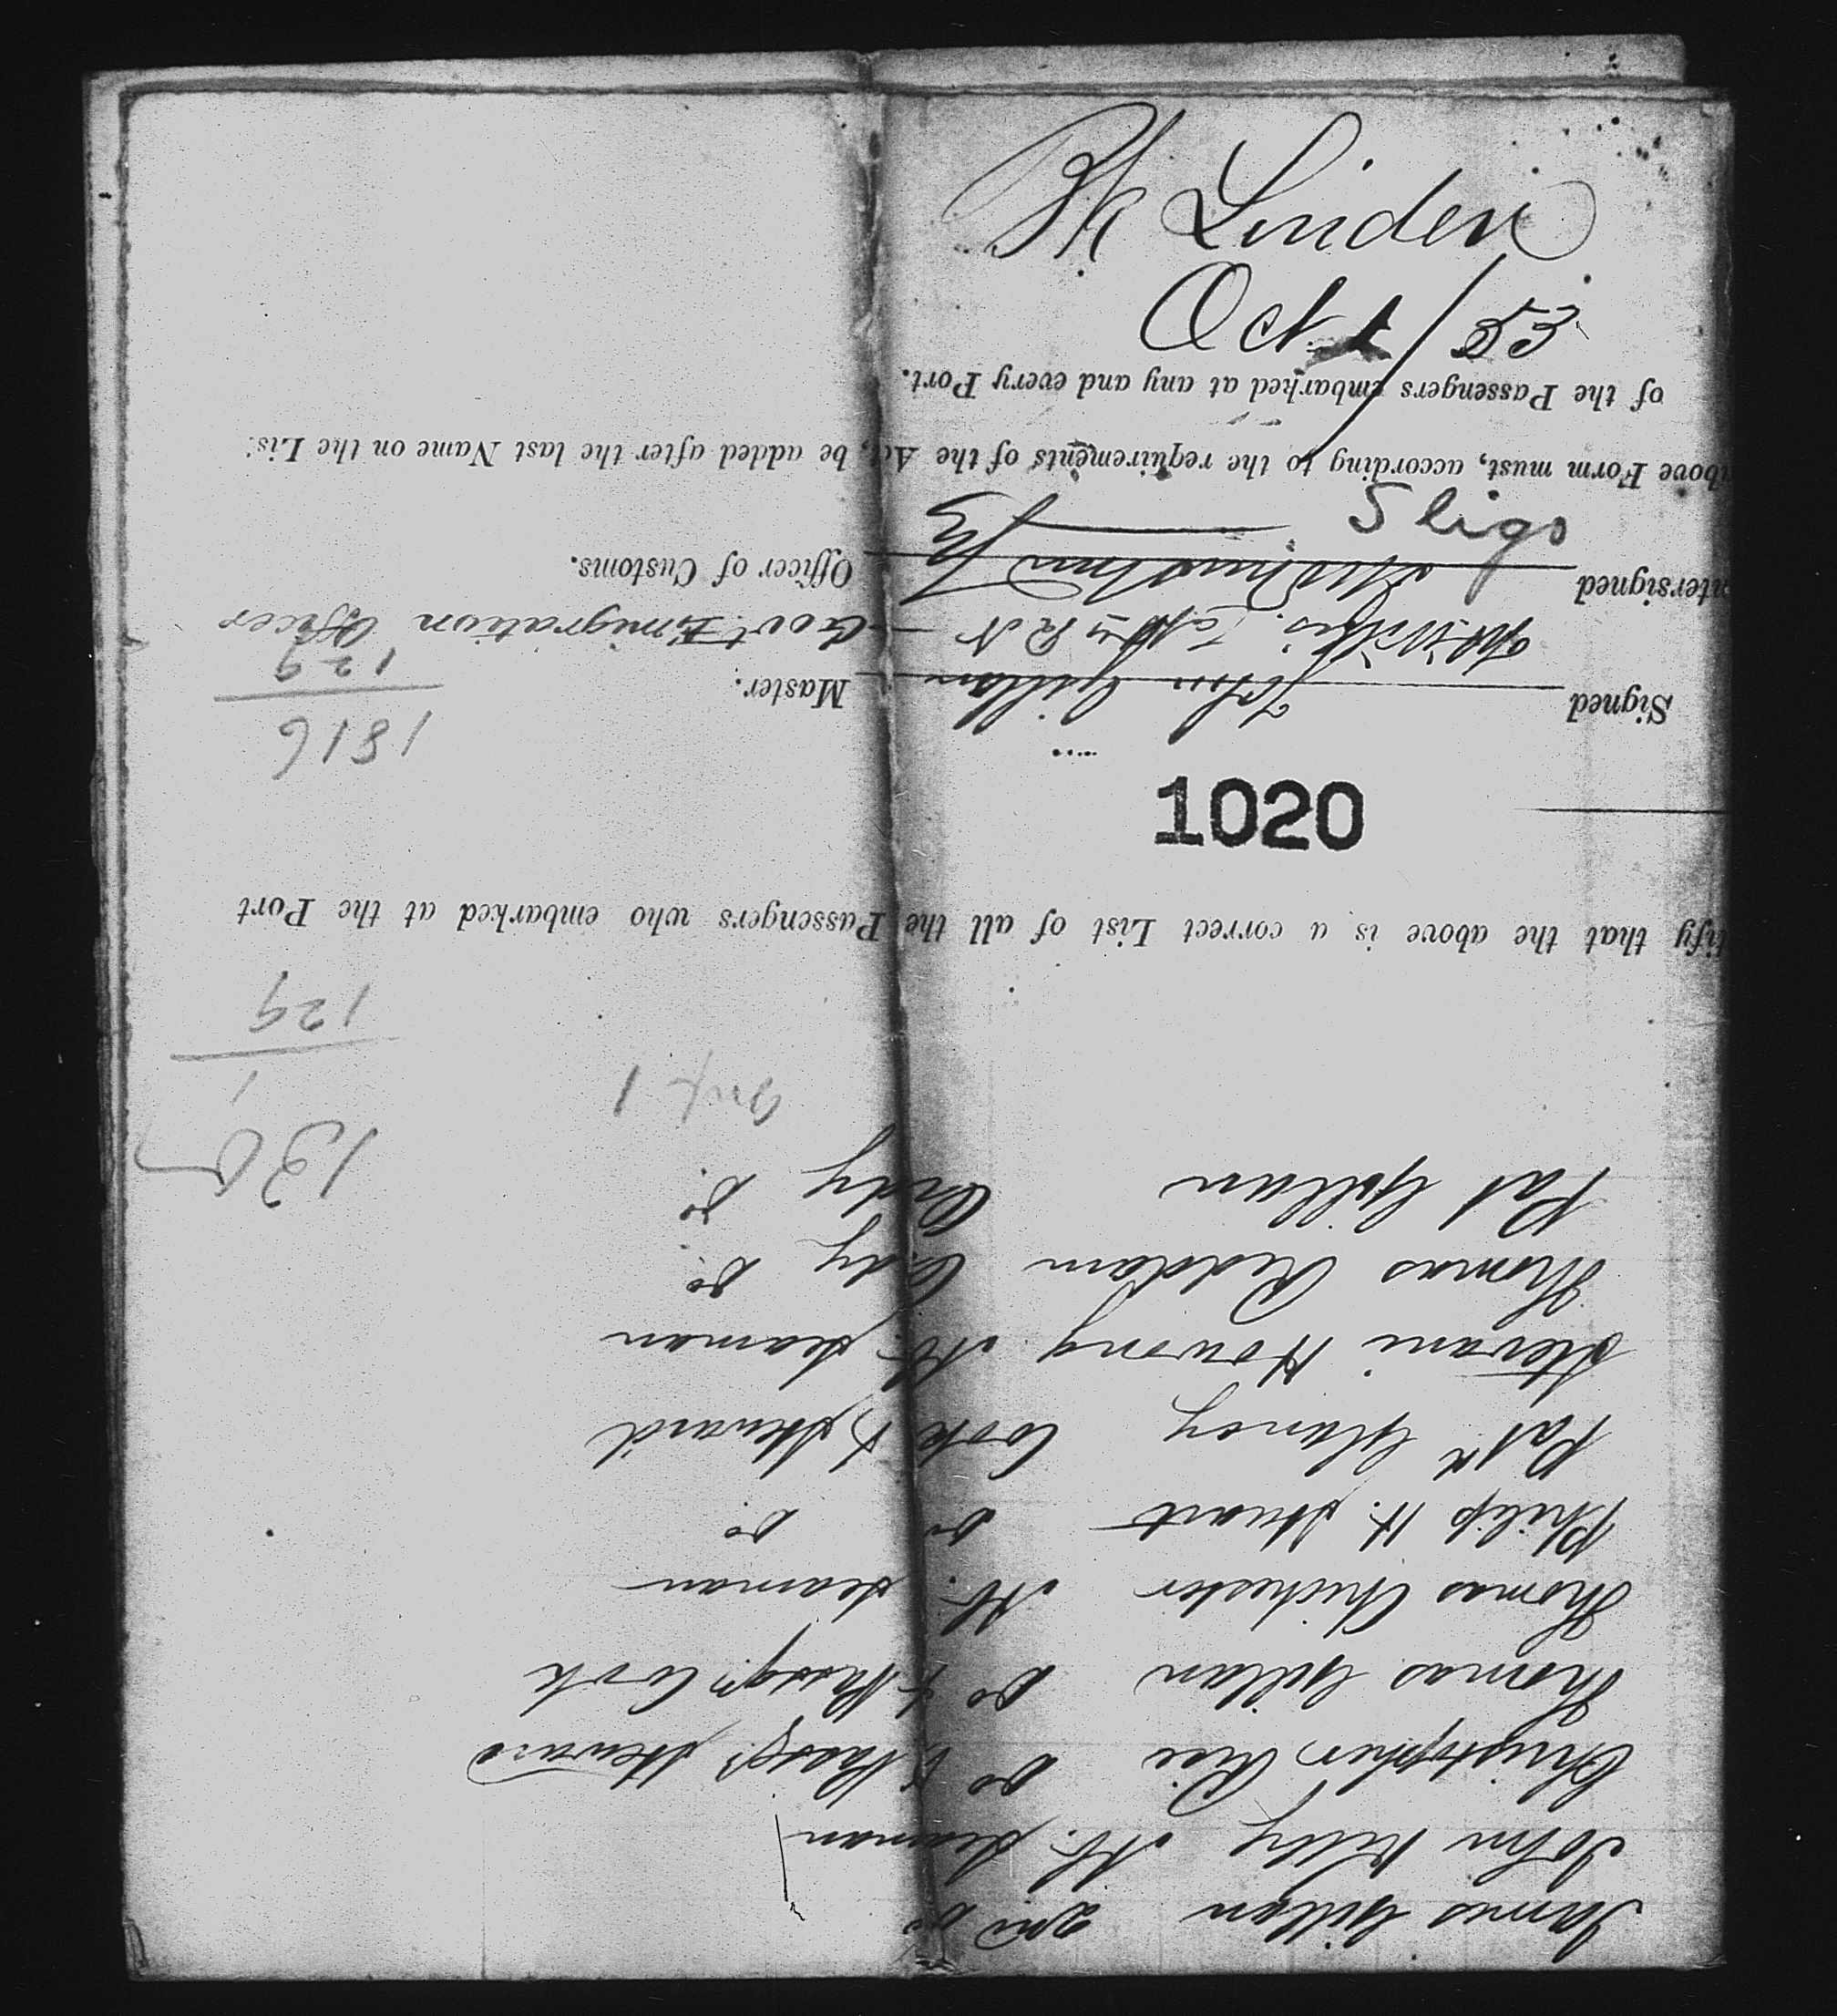 Bk Linden
Oct 1/53
Sligo
1020
James Gillan 2nd Do
John Kelly Ab. Seaman
Christopher Rice Do & Passgr. Steward
Thomas Gillan Do & Passgr. Cook
Thomas Chichester Ab. Seaman
Philip H. Stuart Do Do
Patk Glancy Cook & Steward
Howong Ab. Seaman
Thomas Reddan Ordy Do
Pat Gillan Ordy Do
Inft 1
130
1
129
tify that the above is a correct List of all the Passengers who embarked at the Port
1816
129
Signed John Gillan Master.
Capt. R N Govt. Emigration Officer
ntersigned Officer of Customs.
above Form must, according to the requirements of the Act, be added after the last Name on the Lis
of the Passengers embarked at any and every Port.